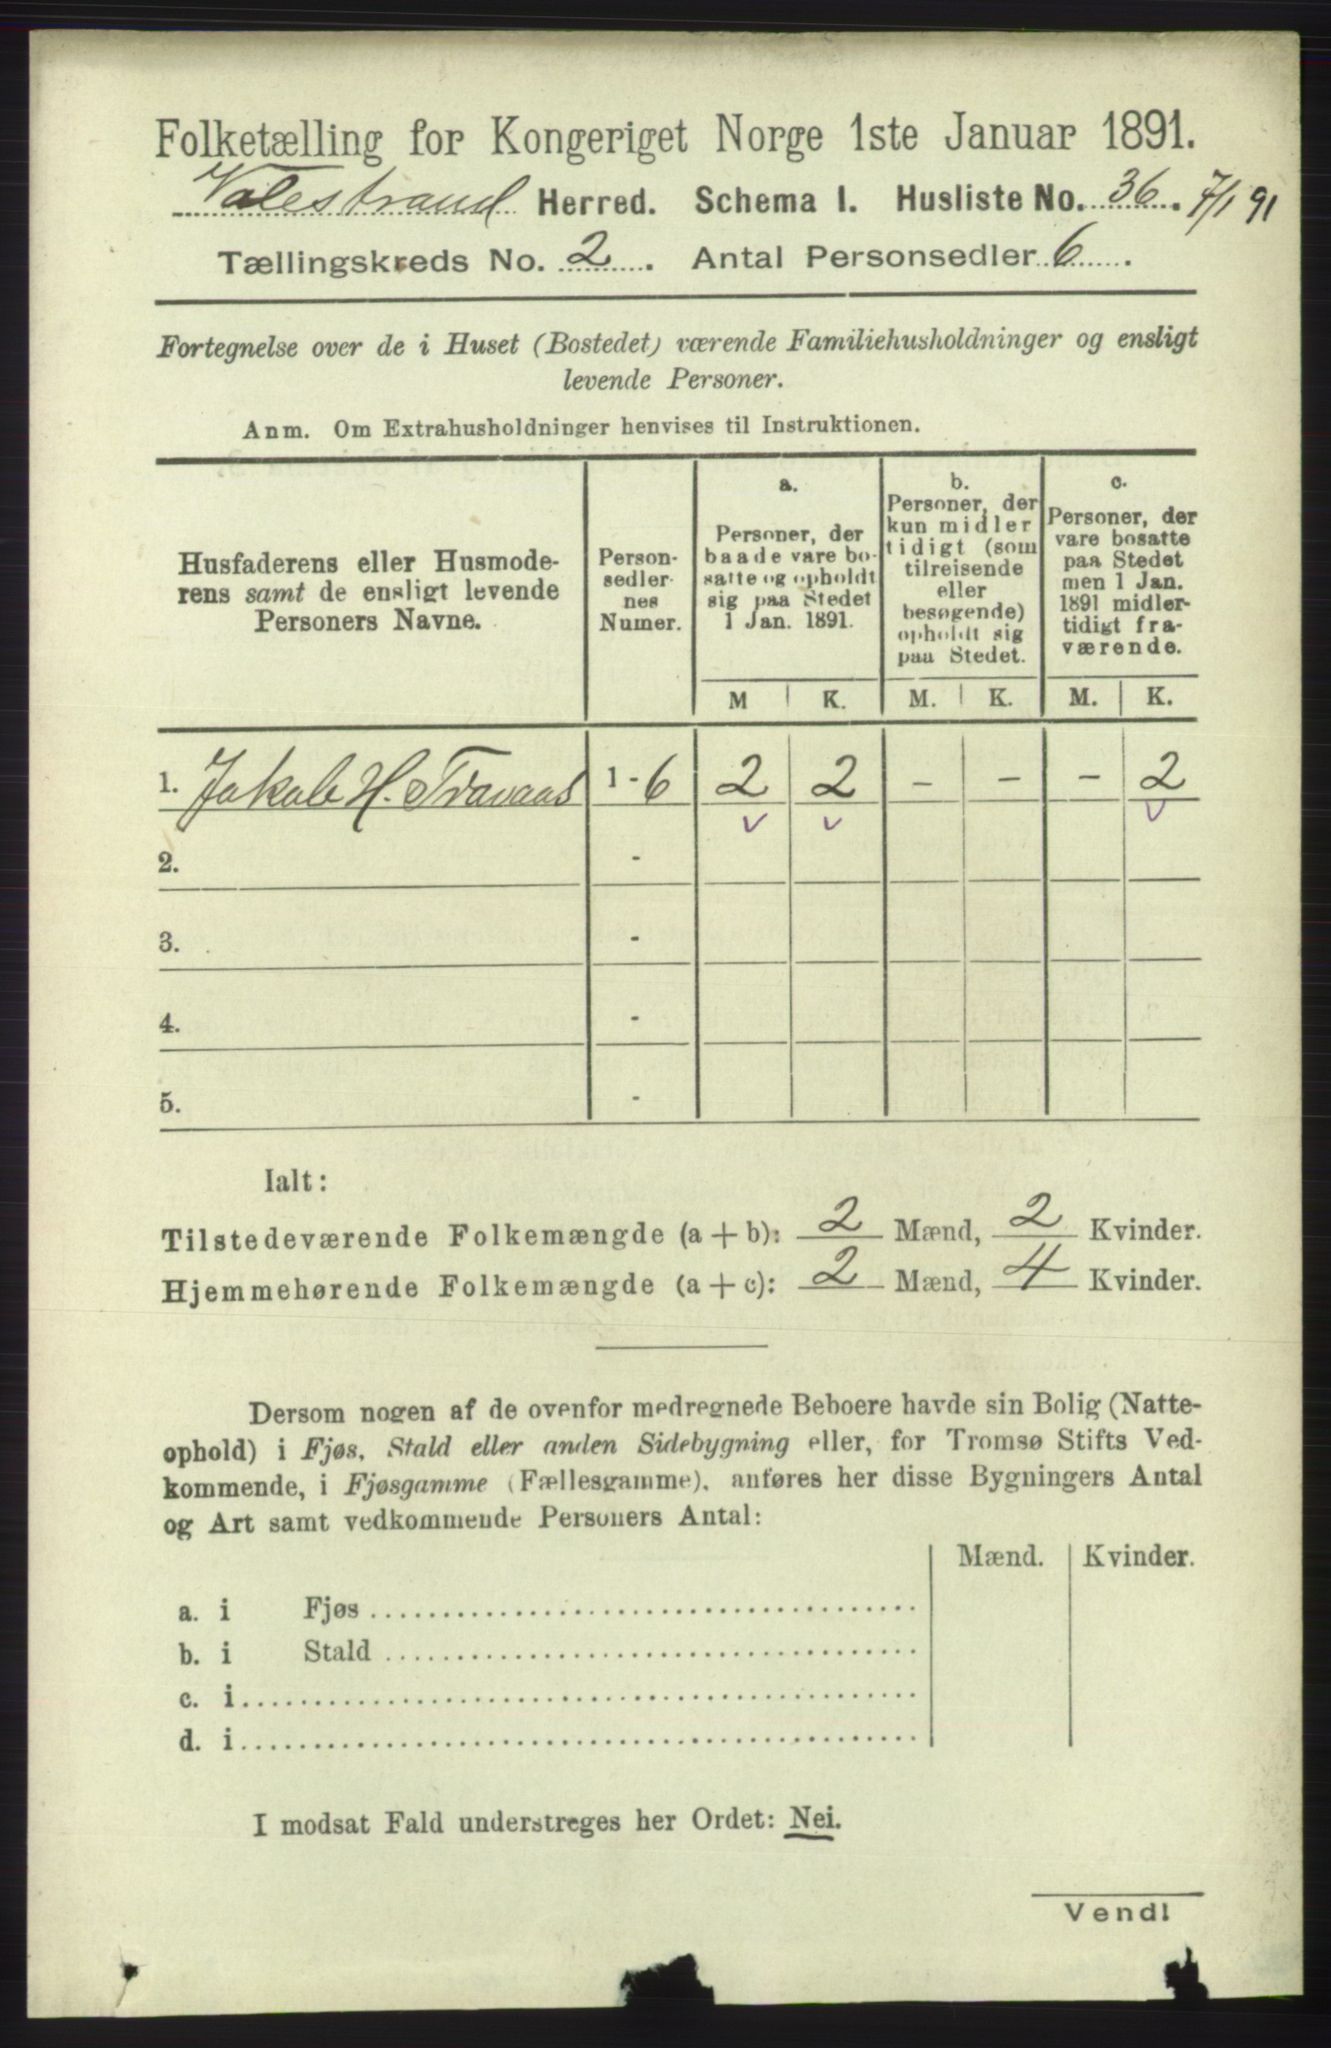 Folketælling for Kongeriget Norge 1ste Januar 1891.
Valestrand Herred. Schema I. Husliste No. 36. 7/1 91
Tællingskreds No. 2. Antal Personsedler 6.
Fortegnelse over de i Huset (Bostedet) værende Familiehusholdninger og ensligt
levende Personer.
Anm. Om Extrahusholdninger henvises til Instruktionen.
Husfaderens eller Husmode-
rens samt de ensligt levende
Personers Navne.
Person-
sedler-
nes
Numer.
a.
Personer, der
baade vare bo-
satte og opholdt
sig paa Stedet
1 Jan. 1891.
M K.
b.
Personer, der
kun midler
tidigt (som
tilreisende
eller
besøgende)
opholdt sig
paa Stedet.
M. K.
c.
Personer, der
vare bosatte
paa Stedet
men 1 Jan.
1891 midler-
tidigt fra-
værende.
M. K.
1. Jakob H. Travaas 1 - 6 2 2 - - - 2
2. -
3. -
4. -
5. -
Ialt:
Tilstedeværende Folkemængde (a + b): 2 Mænd, 2 Kvinder.
Hjemmehørende Folkemængde (a + c): 2 Mænd, 4 Kvinder.
Dersom nogen af de ovenfor medregnede Beboere havde sin Bolig (Natte-
ophold) i Fjøs, Stald eller anden Sidebygning eller, for Tromsø Stifts Ved-
kommende, i Fjøsgamme (Fællesgamme), anføres her disse Bygningers Antal
og Art samt vedkommende Personers Antal:
Mænd. Kvinder.
a. i Fjøs
b. i Stald
c. i
d. i
I modsat Fald understreges her Ordet: Nei.
Vend!